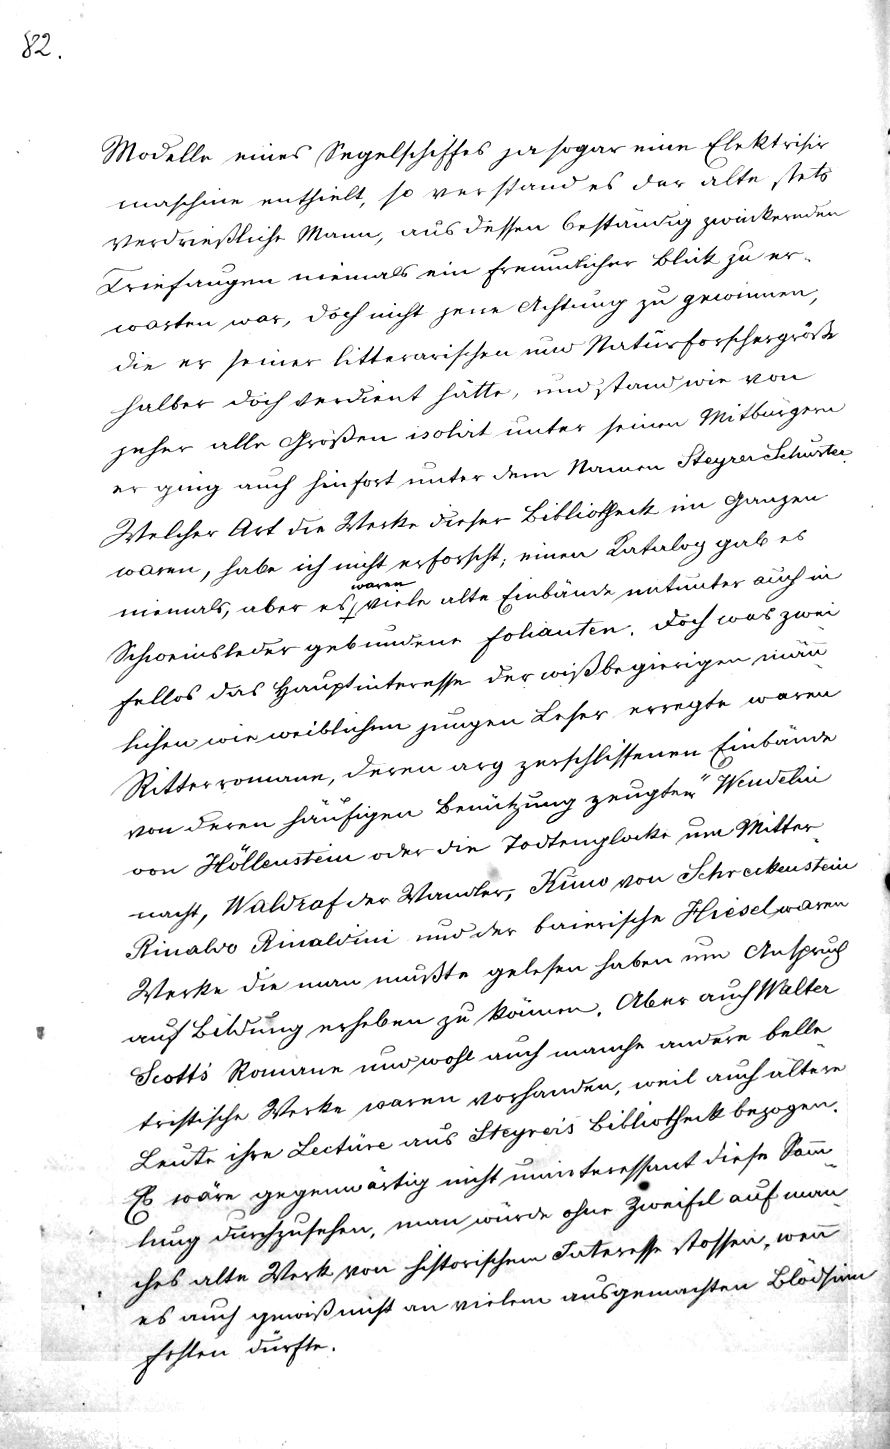 82.
Modelle eines Segelschiffes ja sogar eine Elektrisir
maschine enthielt, so verstand es der alte stets
verdrießliche Mann, aus dessen beständig zwinkernden
Triefaugen niemals ein freundlicher Blick zu er-
warten war, doch nicht jene Achtung zu gewinnen,
die er seiner litterarischen und Naturforschergröße
halber doch verdient hätte, und stand wie von
jeher alle Größen isolirt unter seinen Mitbürgern
er ging auch hinfort unter dem Namen Steyrer Schuster.
Welcher Art die Werke dieser Bibliothek im Ganzen
waren, habe ich nicht erforscht, einen Katalog gab es
niemals, aber es waren viele alte Einbände mitunter auch in
Schweinsleder gebundene Folianten. Doch was zwei
fellos das Hauptinteresse der wißbegierigen män̄
lichen wie weiblichen jungen Leser erregte waren
Ritterromane, deren arg zerschlissenen Einbände
von deren häufigen Benützung zeugten "Wendelin
von Höllenstein oder die Todtenglocke um Mitter-
nacht, Waldraf der Wandler, Kuno von Schreckenstein
Rinaldo Rinaldini und der baierische Hiesel waren
Werke die man mußte gelesen haben um Anspruch
auf Bildung erheben zu können. Aber auch Walter
Scotts Romane und wohl auch manche andere belle
tristische Werke waren vorhanden, weil auch ältere
Leute ihre Lectüre aus Steyreis Bibliothek bezogen.
Es wäre gegenwärtig nicht uninteressant diese Sam̄
lung durchzusehen, man würde ohne Zweifel auf man
ches alte Werk von historischem Interesse stossen, wen̄
es auch gewiß nicht an vielem ausgemachten Blödsinn
fehlen dürfte.